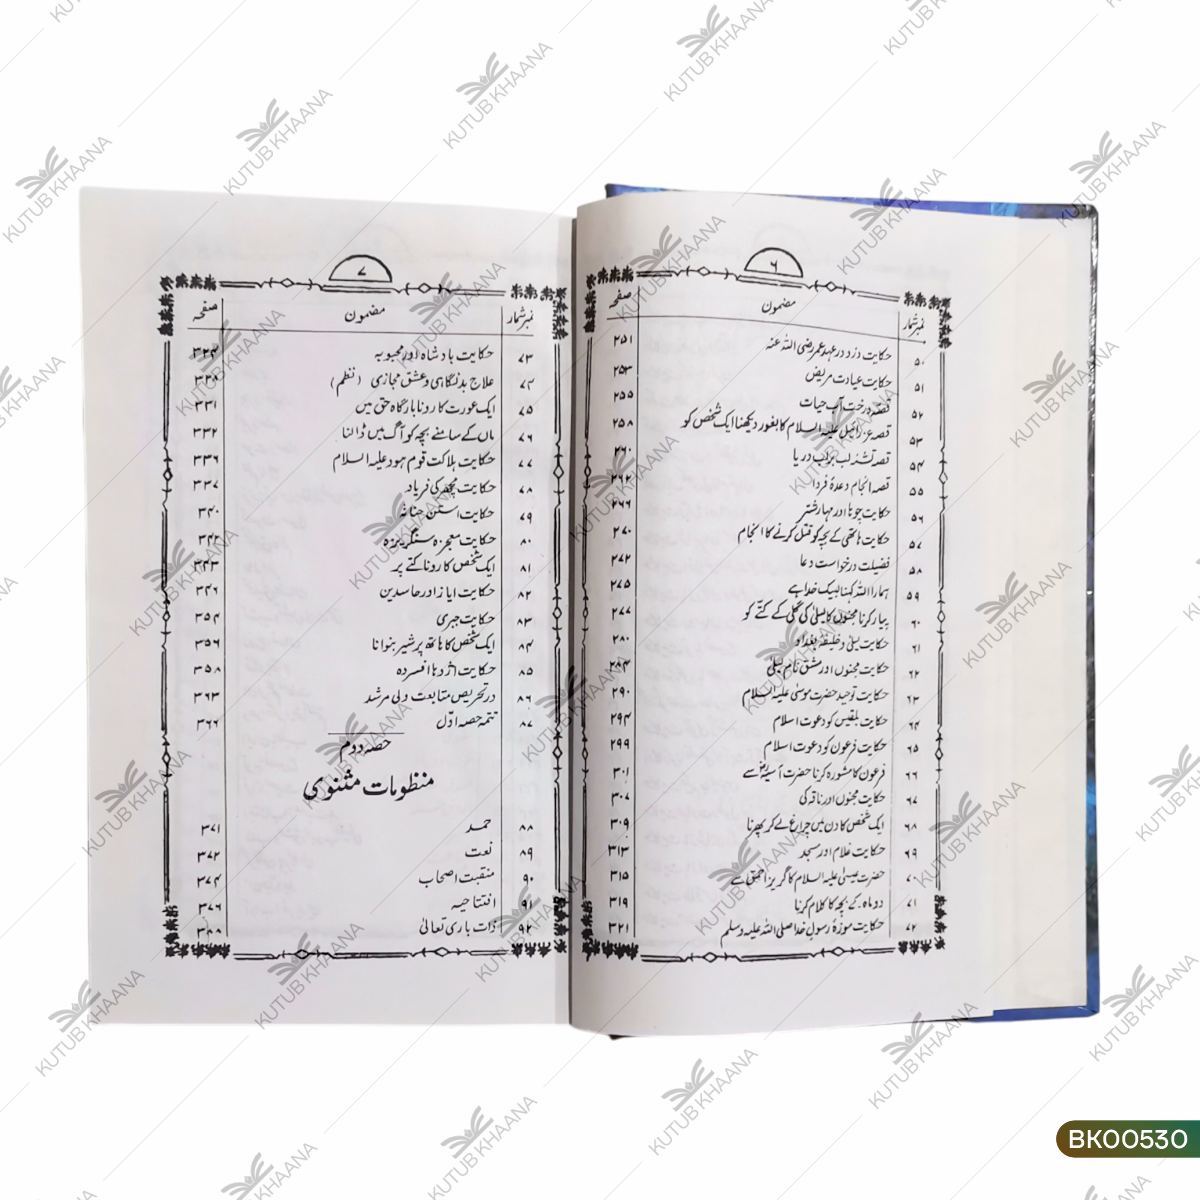 ۶
نمبر شمار مضمون صفحہ
۵۰ حکایت دزد در عہد عمر رضی اللہ عنہ ۲۵۱
۵۱ حکایت عیادت مریض ۲۵۳
۵۲ قصہ درخت آب حیات ۲۵۵
۵۳ قصہ عزرائیل علیہ السلام کا بغور دیکھنا ایک شخص کو ۲۵۸
۵۴ قصہ تشنہ لب برلب دریا ۲۶۰
۵۵ قصہ انجام وعدۂ فردا ۲۶۲
۵۶ حکایت چوہا اور مہار شتر ۲۶۶
۵۷ حکایت ہاتھی کے بچہ کو قتل کرنے کا انجام ۲۷۰
۵۸ فضیلت درخواست دعا ۲۷۲
۵۹ ہمارا اللہ کہنا لبیک خدا ہے ۲۷۵
۶۰ پیار کرنا مجنوں کا لیلیٰ کی گلی کے کتے کو ۲۷۷
۶۱ حکایت لیلیٰ و خلیفہ بغداد ۲۸۰
۶۲ حکایت مجنوں اور مشق نام لیلیٰ ۲۸۴
۶۳ حکایت توحید حضرت موسیٰ علیہ السلام ۲۹۰
۶۴ حکایت بلقیس کو دعوت اسلام ۲۹۴
۶۵ حکایت فرعون کو دعوت اسلام ۲۹۹
۶۶ فرعون کا مشورہ کرنا حضرت آسیہؓ سے ۳۰۱
۶۷ حکایت مجنوں اور ناقہ کی ۳۰۷
۶۸ ایک شخص کا دن میں چراغ لے کر پھرنا ۳۰۹
۶۹ حکایت غلام اور مسجد ۳۱۳
۷۰ حضرت عیسیٰ علیہ السلام کا گریز احمق سے ۳۱۵
۷۱ دو ماہ کے بچہ کا کلام کرنا ۳۱۹
۷۲ حکایت موزۂ رسول خدا صلی اللہ علیہ وسلم ۳۲۱
۷
نمبر شمار مضمون صفحہ
۷۳ حکایت بادشاہ اور محبوبہ ۳۲۴
۷۴ علاج بدنگاہی و عشق مجازی (نظم) ۳۲۸
۷۵ ایک عورت کا رونا بارگاہ حق میں ۳۳۱
۷۶ ماں کے سامنے بچہ کو آگ میں ڈالنا ۳۳۲
۷۷ حکایت ہلاکت قوم ہود علیہ السلام ۳۳۶
۷۸ حکایت مچھر کی فریاد ۳۳۷
۷۹ حکایت استن حنانہ ۳۴۰
۸۰ حکایت معجزہ سنگریزہ ۳۴۲
۸۱ ایک شخص کا رونا کتے پر ۳۴۳
۸۲ حکایت ایاز اور حاسدین ۳۴۶
۸۳ حکایت جبری ۳۵۴
۸۴ ایک شخص کا ہاتھ پر شیر بنوانا ۳۵۶
۸۵ حکایت اژدہا افسردہ ۳۵۸
۸۶ در تحریص متابعت ولی مرشد ۳۶۳
۸۷ تتمہ حصہ اوّل ۳۶۶
حصہ دوم
منظومات مثنوی
۸۸ حمد ۳۷۱
۸۹ نعت ۳۷۲
۹۰ منقبت اصحاب ۳۷۴
۹۱ افتتاحیہ ۳۷۶
۹۲ ذات باری تعالیٰ ۳۸۸
KUTUB KHAANA
BK00530